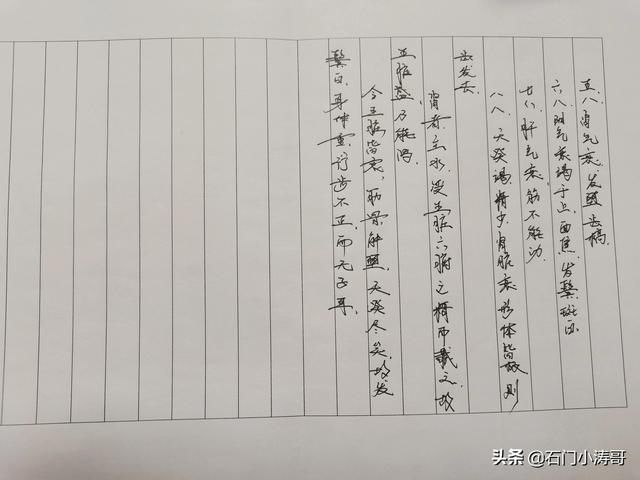 五八肾气衰,发堕齿槁
六八阳气衰竭于上,面焦,发鬓斑白
七八肝气衰,筋不能动
八八,天癸竭,精少,肾脏衰,形体皆极,则
齿发去
肾者主水,受五脏六腑之精而藏之,故
五脏盛乃能泻
今五脏皆衰,筋骨解堕,天癸尽矣,故发
鬓白,身体重,行步不正,而无子耳
头条 @石门小涛哥